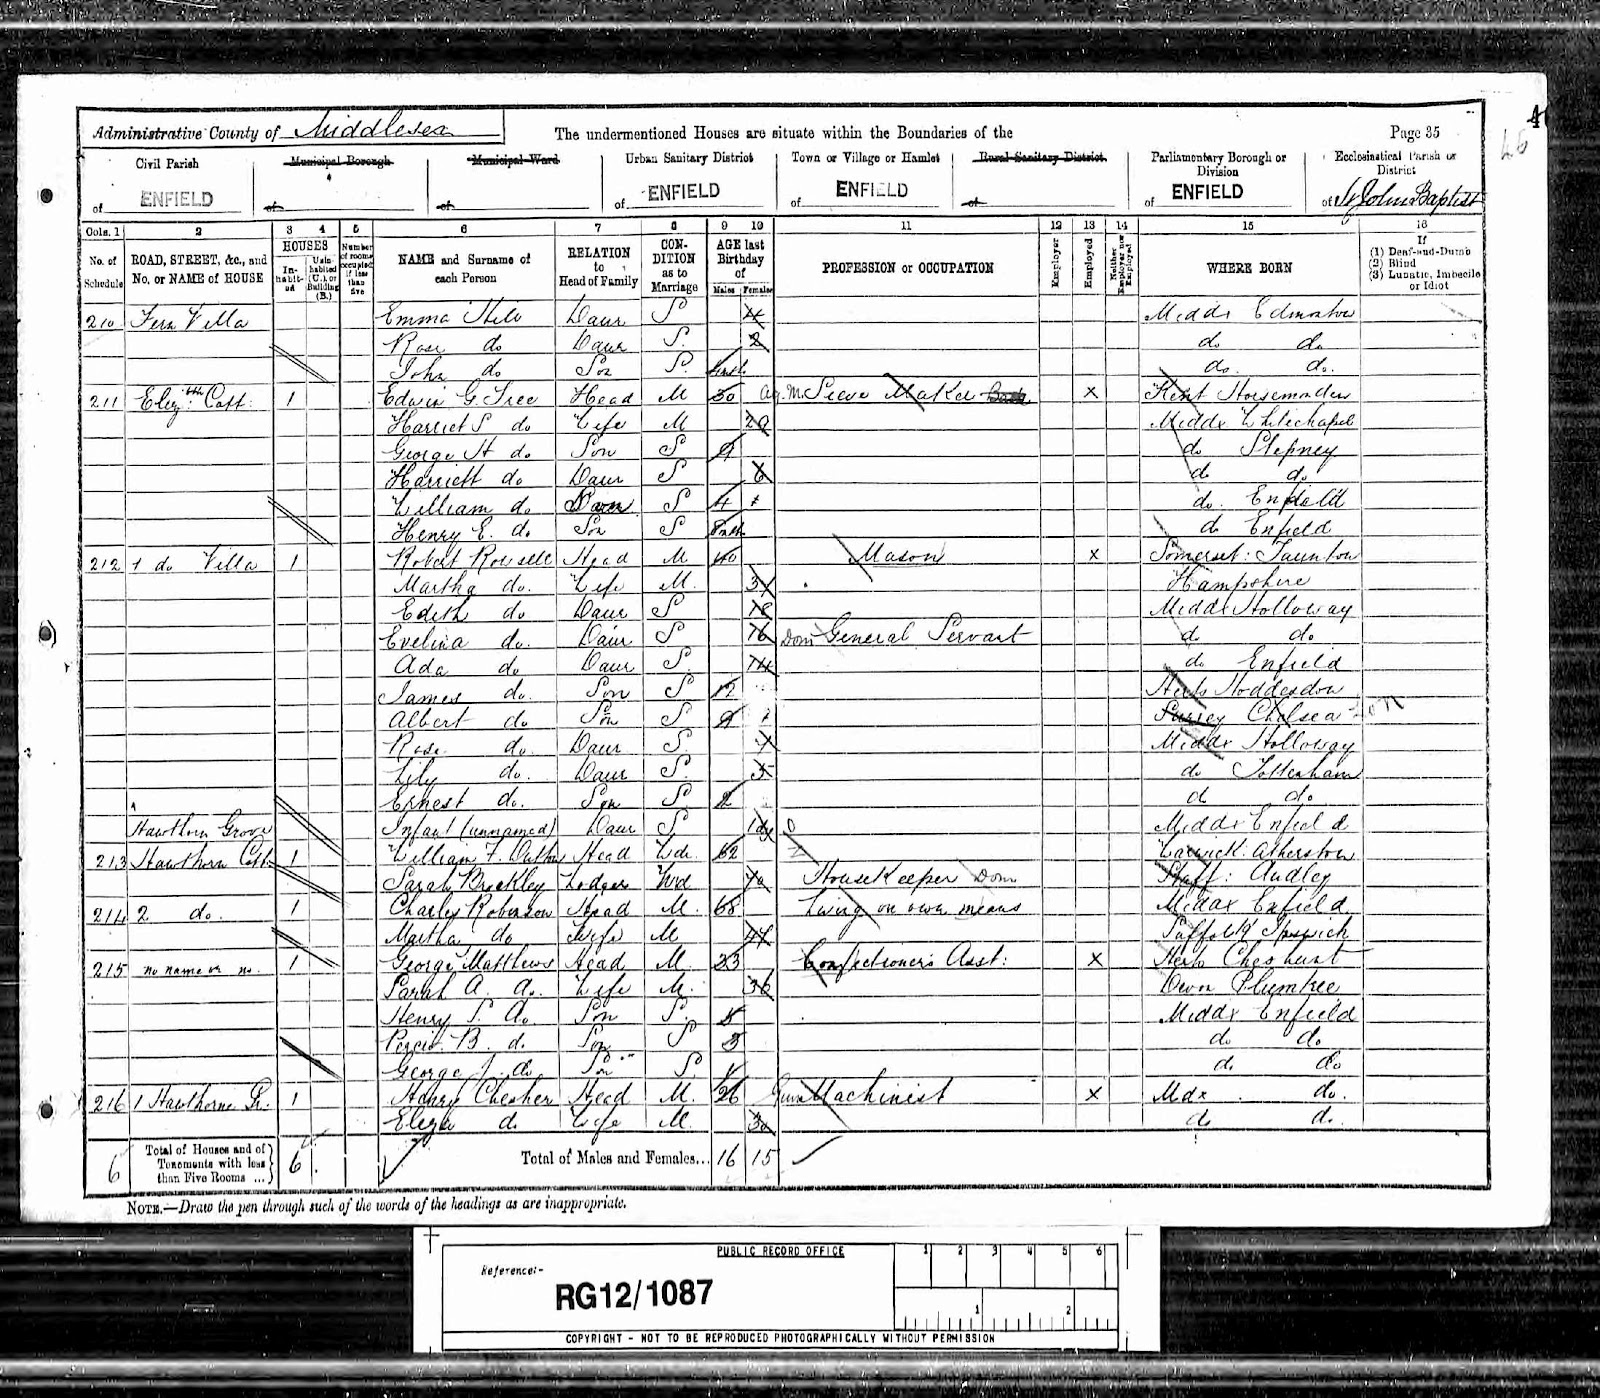 Administrative County of Middlesex The undermentioned Houses are situate within the Boundaries of the Page 35
Civil Parish Municipal Borough Municipal Ward Urban Sanitary District Town or Village or Hamlet Rural Sanitary District Parliamentary Borough or Division Ecclesiastical Parish or District
of ENFIELD of of of ENFIELD of ENFIELD of of ENFIELD of St John Baptist
Cols. 1 2 3 4 5 6 7 8 9 10 11 12 13 14 15 16
No. of Schedule ROAD, STREET, &c., and No. or NAME of HOUSE HOUSES Inhabited Uninhabited (U.), or Building (B.) Number of rooms occupied if less than five NAME and Surname of each Person RELATION to Head of Family CONDITION as to Marriage AGE last Birthday of Males Females PROFESSION or OCCUPATION Employer Employed Neither Employer nor Employed WHERE BORN If (1) Deaf-and-Dumb (2) Blind (3) Lunatic, Imbecile or Idiot
210 Fern Villa Emma Daur S 4 Middx Edmonton
Rose do Daur S. 2 do do
John do Son S. do. do.
211 Eliz:th Cott. 1 Edwin G. Tree Head M 30 Sieve Maker X Kent Horsemonden
Harriet S do Wife M 29 Middx Whitechapel
George H do Son S 9 do Stepney
Harriett do Daur S 6 do do
William do S 4 do. Enfield
Henry E. do. Son S 8mth do Enfield
212 1 do Villa 1 Robert Rowsell Head M 40 Mason X Somerset: Taunton
Martha do. Wife M. Hampshire
Edith do Daur S 18 Middx Holloway
Evelina do Daur S 16 Dom General Servant do do.
Ada do Daur S. 14 do Enfield
James do. Son S 12 Herts Hoddesdon
Albert do Son S. 9 Surrey Chelsea Lon
Rose do. Daur S. 7 Middx Holloway
Lily do. Daur S. 5 do Tottenham
Ernest do. Son S 2 do do.
Hawthorn Grove Infant (unnamed) Daur S 1dy Middx Enfield
213 Hawthorn Cott. 1 William F. Head Wdr. 62 Warwick. Atherstone
Sarah Brockley Lodger Wid 70 HouseKeeper Dom Staff: Audley
214 2 do. 1 Charles Robinson Head M. 68 Living on own means Middx Enfield
Martha do Wife M Suffolk Ipswich
215 no name or no. 1 George Matthews Head M. 33 Confectioners Asst: X Herts Cheshunt
Sarah A. do. Wife M. 36 Devon Plumtree
Henry S. do. Son S. 5 Middx Enfield
Percy B. do. Son S 3 do do.
George J. do. Son S 1 do do
216 1 Hawthorne Gr. 1 Henry Chesher Head M. 26 Gun Machinist X Mdx do.
Eliza do Wife M. 30 do do.
6 Total of Houses and of Tenements with less than Five Rooms ... 6 Total of Males and Females... 16 15
NOTE.—Draw the pen through such of the words of the headings as are inappropriate.
PUBLIC RECORD OFFICE 1 2 3 4 5 6
Reference:-
RG12/1087
1 2
COPYRIGHT - NOT TO BE REPRODUCED PHOTOGRAPHICALLY WITHOUT PERMISSION